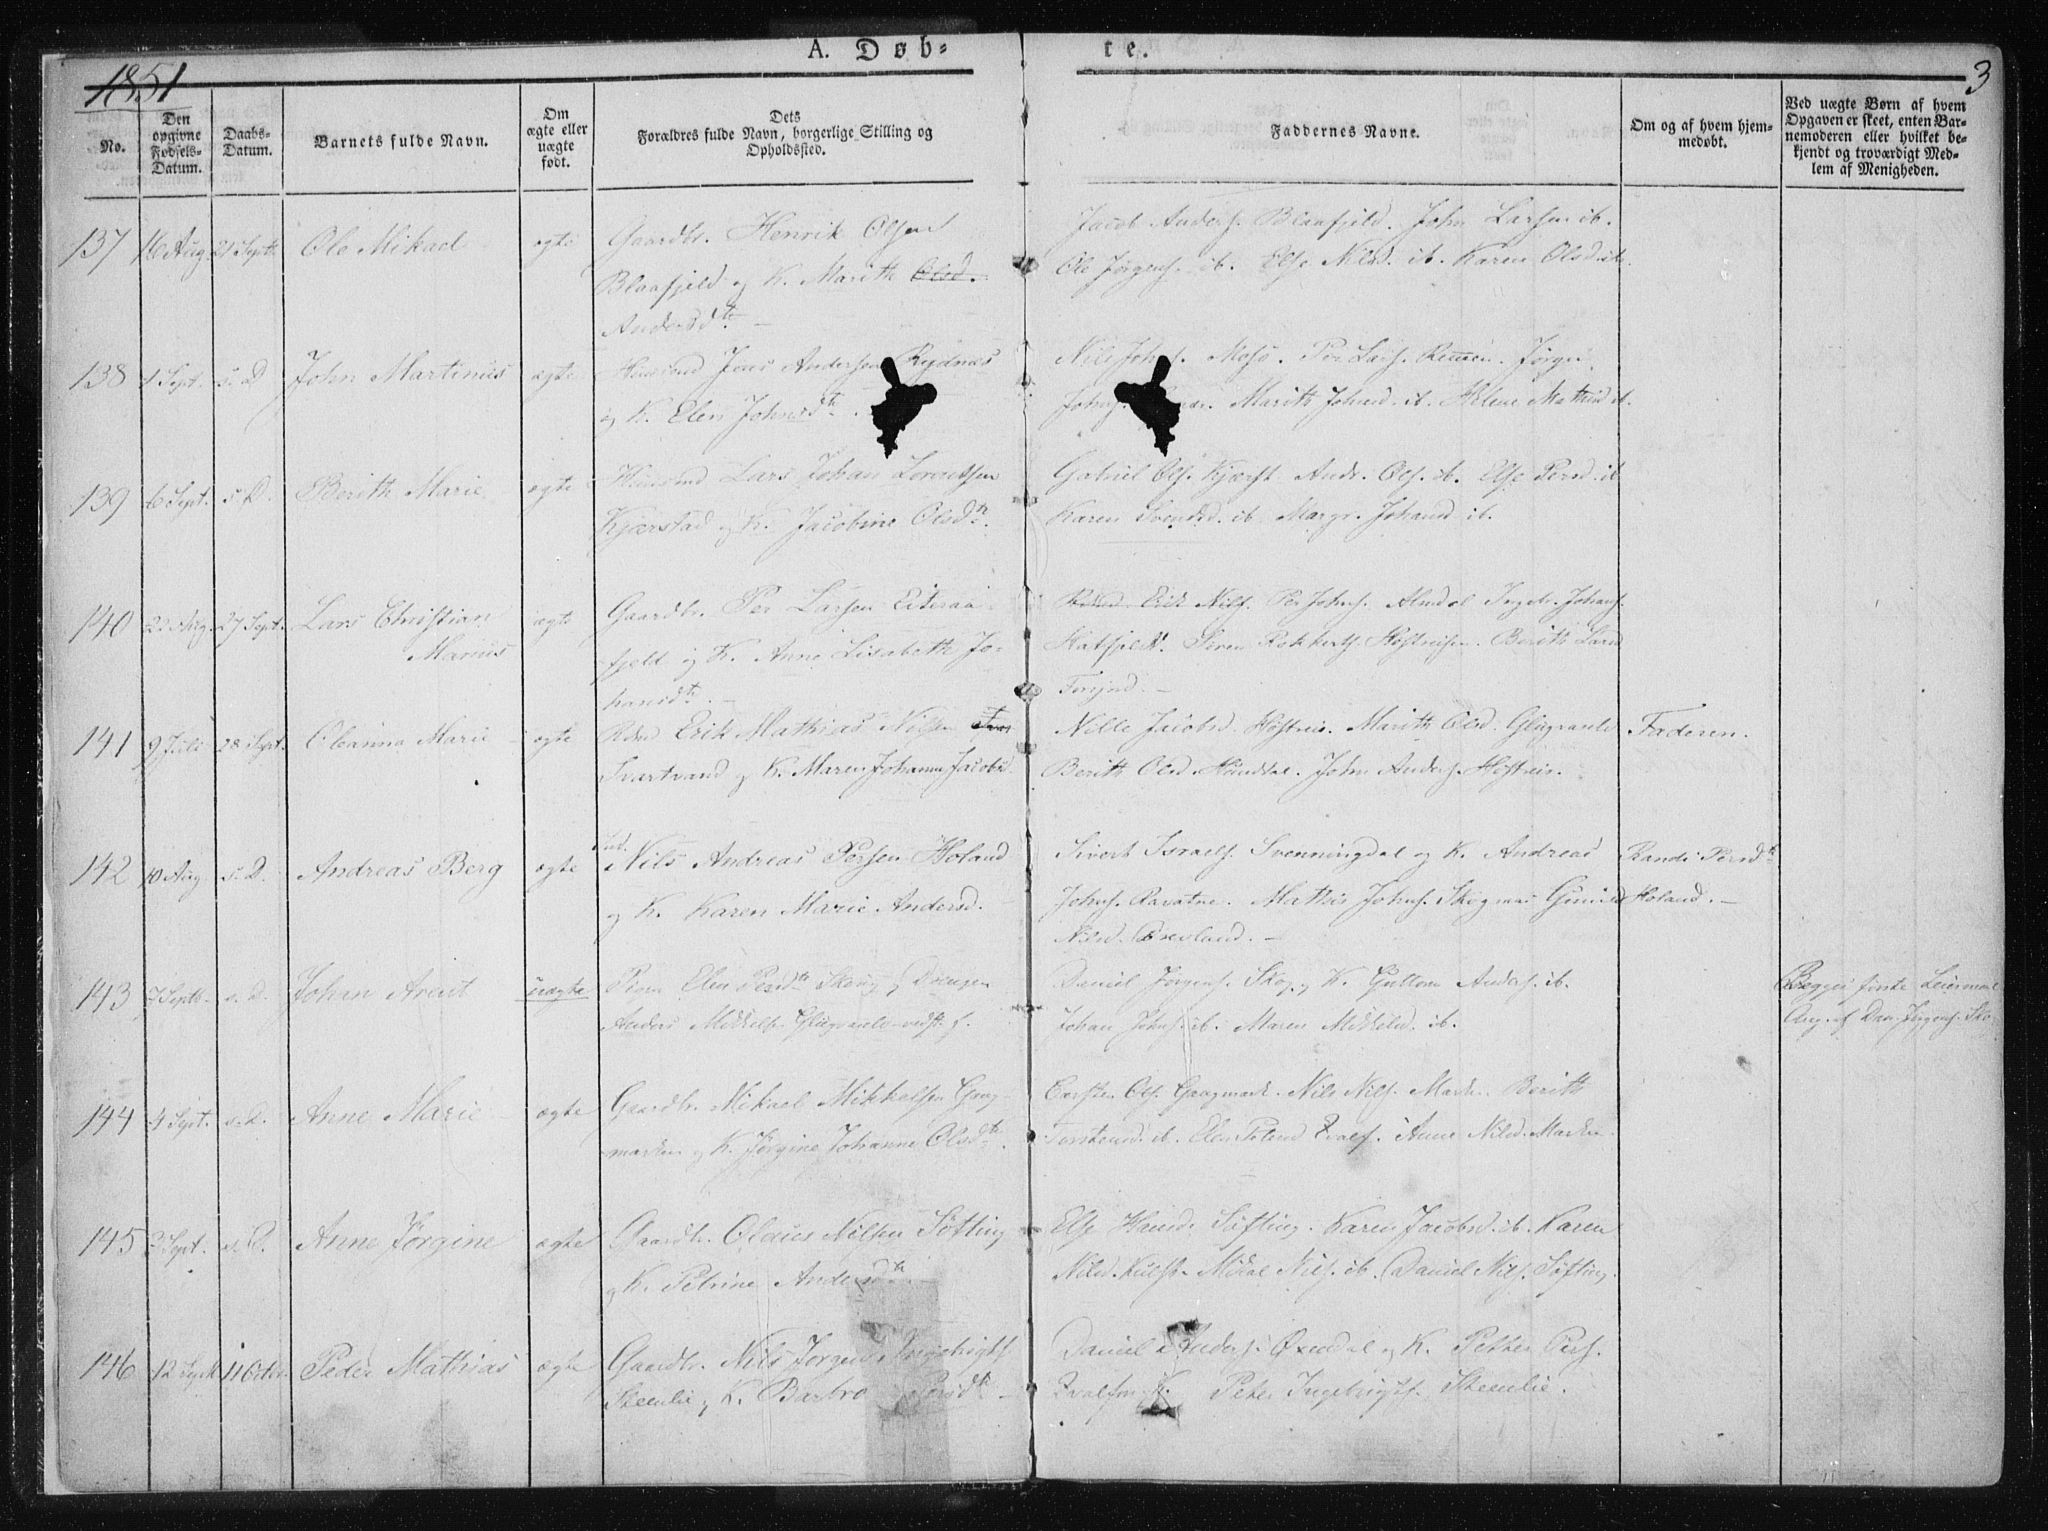 A. Døb-
te.
1851
3
No.
Den opgivne Fødsels-Datum.
Daabs-Datum.
Barnets fulde Navn.
Om ægte eller uægte født.
Dets Forældres fulde Navn, borgerlige Stilling og Opholdssted.
Faddernes Navne.
Om og af hvem hjem-medøbt.
Ved uægte Børn af hvem Opgaven er skeet, enten Bar-nemoderen eller hvilket be-kjendt og troværdigt Med-lem af Menigheden.
137 16 Aug. 21 Sept. Ole Mikael ægte Gaardbr. Henrik Olsen
Blaafjeld og K. Marith Olsd.
Andersdtr. –
Jacob Anders. Blaafjeld. John Larsen ib.
Ole Jørgens. ib. Else Nilsd. ib. Karen Olsd. ib.
138 1 Sept. s. D. John Martinus ægte Huusmd Jens Andersen Rydnæs
og K. Elen Johnsdtr.
Nils Johns. Moso. Per Lars. Jørgen
Johns. Marith Johnsd. ib. Helene Mathisd. ib.
139 6 Sept. s. D. Berith Marie ægte Huusmd Lars Johan Lorentsen
Kjærstad og K. Jacobine Olsdtr.
Gabriel Ols. Kjærst. Andr. Ols. ib. Else Persd. ib.
Karen Svendsd. ib. Margr. Johansd. ib.
140 22 Aug. 27 Sept. Lars Christian
Marius
ægte Gaardbr. Per Larsen Eiteraa-
fjeld og K. Anne Lisabeth Jo-
hansdtr. –
Erik Nils. Per Johns. Almdal Ingebr. Johans.
Hatfjeld. Søren Berith Larsd.
141 9 Juli 28 Sept. Oleanna Marie ægte Erik Mathias Nilsen
Svartvand og K. Maren Johanna Jacobsd.
Nille Jacobsd. Marith Olsd. Glugvasli
Berith Olsd. Hundal. John Anders.
Faderen.
142 10 Aug. s. D. Andreas Berg ægte Ind. Nils Andreas Persen Holand
og K. Karen Marie Andersd.
Sivert Israels. Svenningdal og K. Andreas
Johns. Ravatne. Mathis Johns. Skogmo
Nilsd. –
Randi Persdtr.
Holand. –
143 7 Septb. s. D. Johan Arent uægte Pigen Elen Persdtr. Skog, Drengen
Anders Mikkels. Glugvasli
Daniel Jørgens. Skog og K. Guttorm Anders. ib.
Johan Johns. ib. Maren Mikkelsd. ib.
Begges første Leiermaal
Ang. af Dan. Jørgens. Skog
144 4 Sept. s. D. Anne Marie ægte Gaardbr. Mikael Mikkelsen Gaug-
marken og K. Jørgine Johanne Olsdtr.
Carsten Ols. Gaugmark. Nils Nils. Mark. Berith
Torstensd. ib. Elen Anne Nilsd. Marken
145 3 Sept. s. D. Anne Jørgine ægte Gaardbr. Olaus Nilsen Søfting
og K. Petrine Andersdtr.
Else Hansd. Søfting. Karen Jacobsd. ib. Karen
Nilsd. Kulst. Mikal Nils. ib. Daniel Nils. Søfting.
146 12 Sept. 11 Octbr. Peder Mathias ægte Gaardbr. Nils Jørgen Ingebrigts.
Steenlie og K. Barbro Persdtr. –
Daniel Anders. Øxendal og K. Petter Pers.
Kvalfor. Peter Ingebrigts. Steenlie.